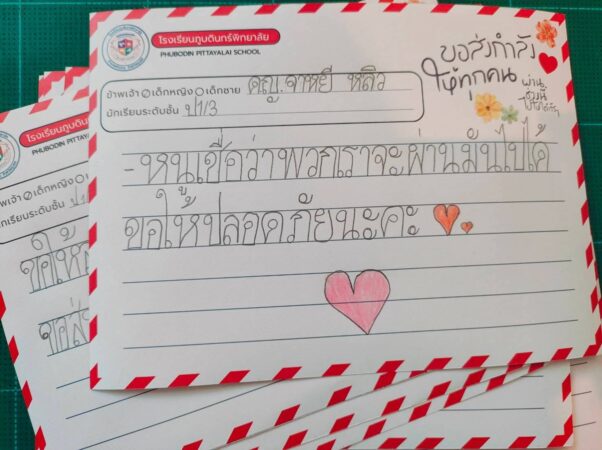 โรงเรียนภูบดินทร์พิทยาลัย
PHUBODIN PITTAYALAI SCHOOL
ข้าพเจ้า เด็กหญิง เด็กชาย ดญ.จาหยี หลิว
นักเรียนระดับชั้น ป1/3
ขอส่งกำลัง
ให้ทุกคน
ผ่าน
ช่วงนี้
ไปได้
-หนูเชื่อว่าพวกเราจะผ่านมันไปได้
ขอให้ปลอดภัยนะคะ
โรงเรียนภูบดินท
PHUBODIN PITTAY
พเจ้า เด็กหญิง
เรียนระดับชั้น ป1
ขอให้
ขอส่